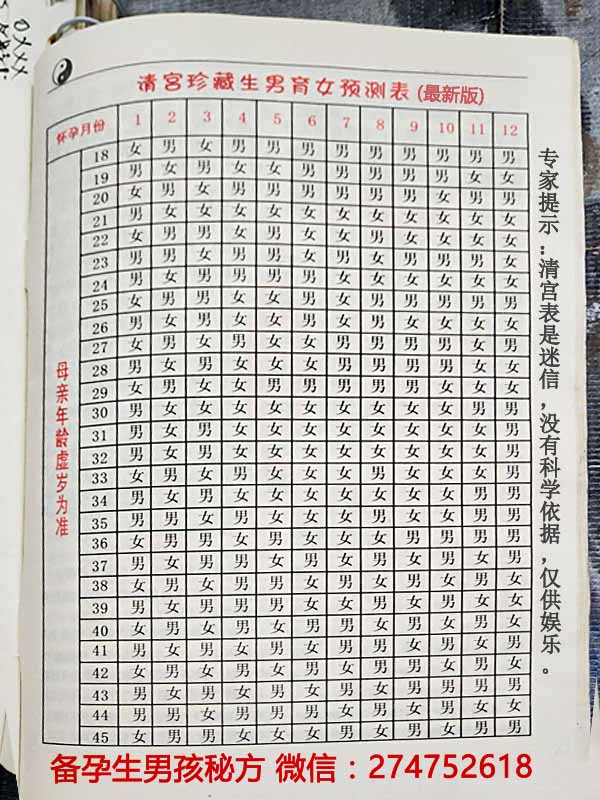 清宫珍藏生男育女预测表 (最新版)
怀孕月份 1 2 3 4 5 6 7 8 9 10 11 12
18 女 男 女 男 男 男 男 男 男 男 男 男
19 男 女 男 女 女 男 男 男 男 男 女 女
20 女 男 女 男 男 男 男 男 男 女 男 男
21 男 女 女 女 女 女 女 女 女 女 女 女
22 女 男 男 女 男 女 女 男 女 女 女 女
23 男 男 女 男 男 女 男 女 男 男 男 女
24 男 女 男 男 男 男 女 女 女 女 女 女
25 女 男 男 女 女 男 女 男 男 男 男 男
26 男 女 男 女 女 男 女 男 女 女 女 女
27 女 男 女 男 女 女 男 男 男 男 女 男
28 男 女 男 女 女 女 男 男 男 男 女 女
29 女 男 女 女 男 男 男 男 男 女 女 女
30 男 女 女 女 女 女 女 女 女 女 男 男
31 男 女 男 女 女 女 女 女 女 女 女 男
32 男 女 男 女 女 女 女 女 女 女 女 男
33 女 男 女 男 女 女 女 男 女 女 女 男
34 男 女 男 女 女 女 女 女 女 女 男 男
35 男 男 女 男 女 女 女 男 女 女 男 男
36 女 男 男 女 男 女 女 女 男 男 男 男
37 男 女 男 男 女 男 女 男 女 男 女 男
38 女 男 女 男 男 女 男 女 男 女 男 女
39 男 女 男 男 男 女 女 男 女 男 女 女
40 女 男 女 男 女 男 男 女 男 女 男 女
41 男 女 男 女 男 女 男 男 女 男 女 男
42 女 男 女 男 女 男 女 男 男 女 男 女
43 男 女 男 女 男 女 男 女 男 男 男 男
44 男 男 女 男 男 男 女 男 女 男 女 女
45 女 男 男 女 女 女 男 女 男 女 男 男
母亲年龄虚岁为准
专家提示：清宫表是迷信，没有科学依据，仅供娱乐。
备孕生男孩秘方 微信：274752618